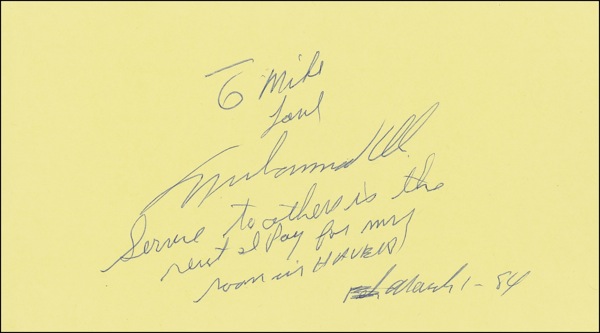 To Mike
Love
Muhammad Ali
Service to others is the
rent I Pay for my
room in HEAVEN
March 1-84